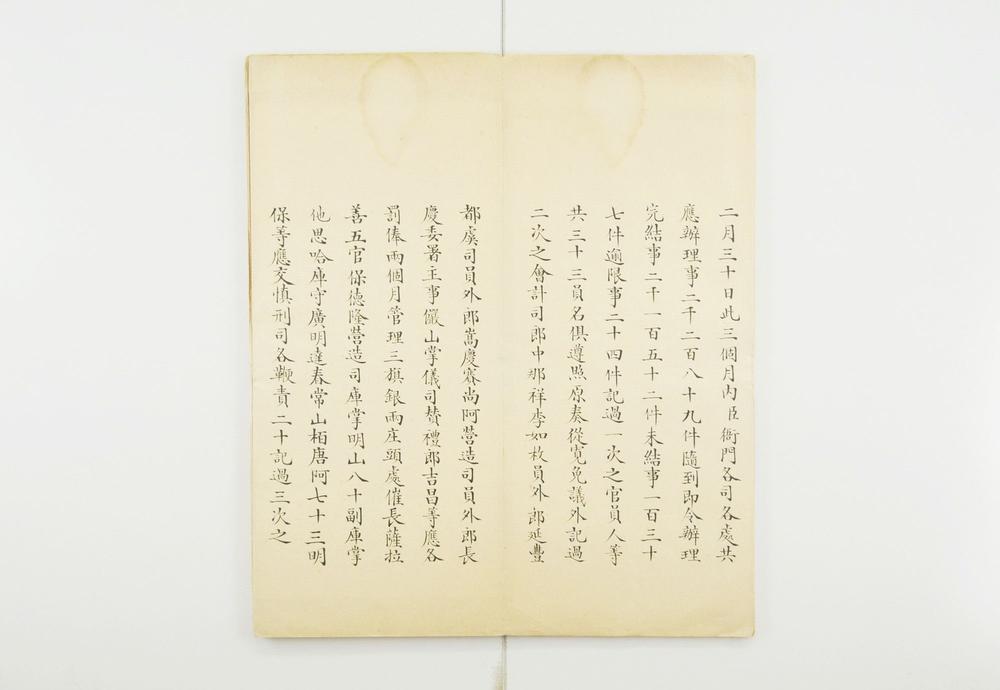 二月三十日此三個月內臣衙門各司各處共
應辦理事二千二百八十九件隨到即令辦理
完結事二千一百五十二件未結事一百三十
七件逾限事二十四件記過一次之官員人等
共三十三員名俱遵照原奏從寬免議外記過
二次之會計司郎中那祥李如枚員外郎延豐
都虞司員外郎嵩慶賽尚阿營造司員外郎長
慶委署主事儼山掌儀司贊禮郎吉昌等應各
罰俸兩個月管理三旗銀兩庄頭處催長薩拉
善五官保德隆營造司庫掌明山八十副庫掌
他思哈庫守廣明達春常山栢唐阿七十三明
保等應交慎刑司各鞭責二十記過三次之